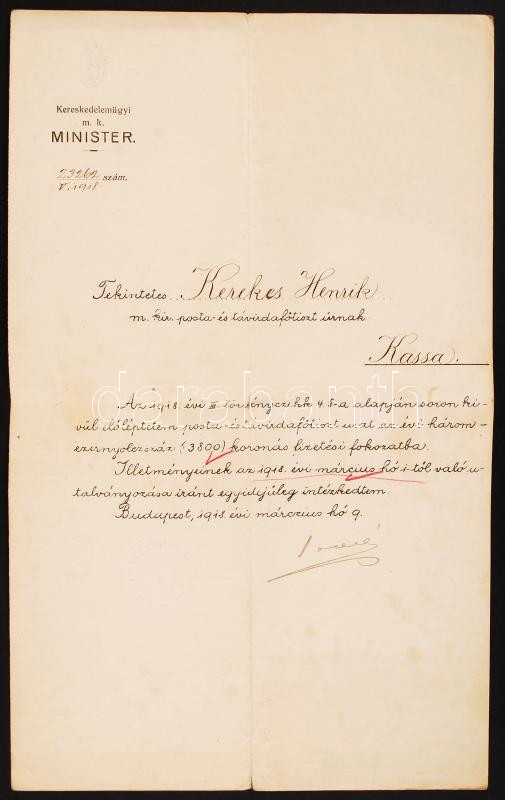 Kereskedelemügyi
m. k.
MINISTER.
23262 szám.
V. 1918
Tekintetes Kerekes Henrik
m. kir. posta- és távirdafőtiszt úrnak
Kassa.
Az 1918. évi III. törvényczikk 4. §-a alapján soron kí-
vül előléptetem posta- és távirdafőtiszt urat az évi három-
ezernyolczszáz (3800) koronás fizetési fokozatba.
Illetményeinek az 1918. évi márczius hó 1-től való u-
talványozása iránt egyidejüleg intézkedtem.
Budapest, 1918 évi márczius hó 9.
darabanth